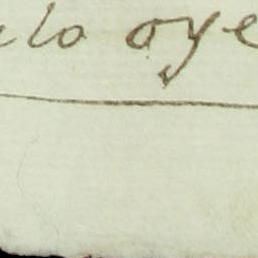 lo oye